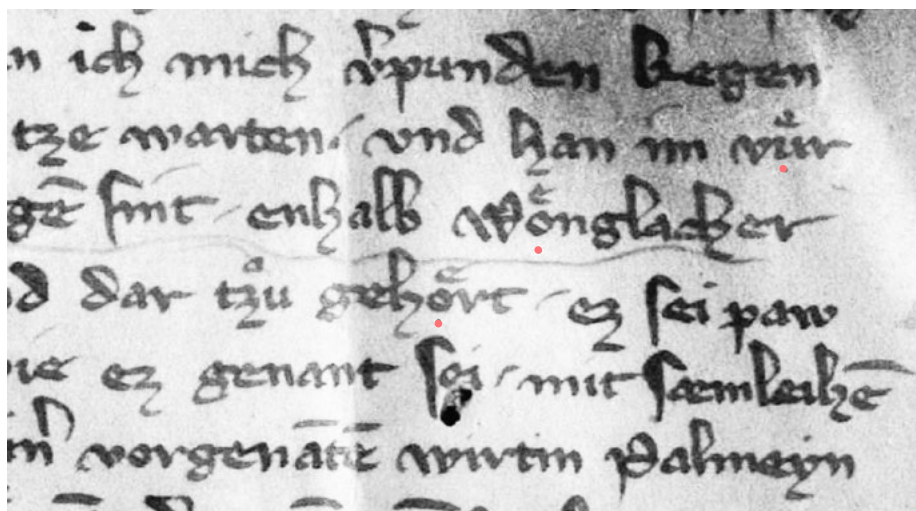 n ich mich v̾punden kegen
tze warten · vnd han im vuͤr
gē sint · enhalb Woͤnglacher
d dar tzuͦ gehoͤrt · ez sei paw
ie ez genant sei · mit sæmleihē
vorgenātē wirtin Palmeyn